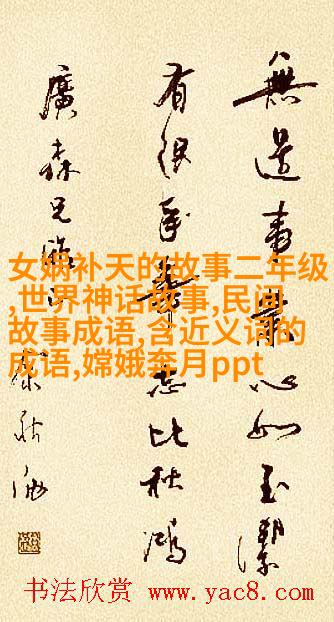 無事業心如玉潔
有限年志比秋鴻
廣森兄
女娲补天的故事二年级
,世界神话故事,民间
故事成语,含近义词的
成语,嫦娥奔月ppt
书法欣赏 www.yac8.com